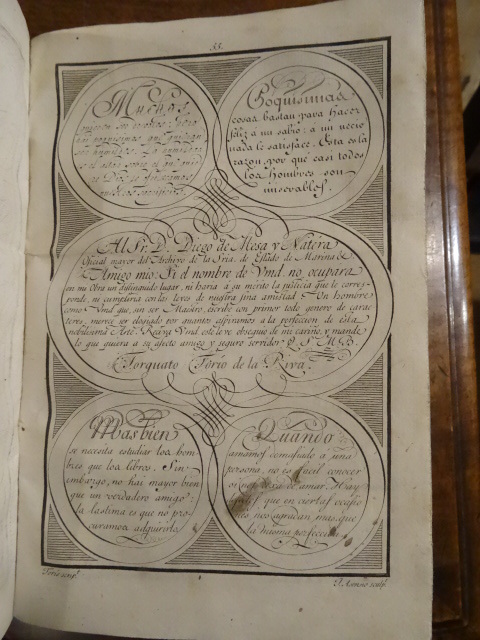 33.
Muchos
Poquisimas
cosas bastan para hacer
feliz a un sabio: a un necio
nada le satisface. Esta es la
razon, por que casi todos
los hombres son
miserables.
Al Sr. D. Diego de Mesa y Natera
Oficial mayor del Archivo de la Sria. de Estado de Marina &
Amigo mio: Si el nombre de Vmd. no ocupara
en mi Obra un distinguido lugar, ni haria a su merito la justicia que le corres-
ponde, ni cumpliria con las leres de nuestra fina amistad. Un hombre
como Vmd. que, sin ser Maestro, escribe con primor todo genero de carac-
teres, merece ser elogiado por quantos aspiramos a la perfeccion de esta
nobilisima Arte. Reciva Vmd. este leve obsequio de mi cariño, y mande
lo que quiera a su afecto amigo y seguro servidor Q. S. M. B.
Torquato Torio de la Riva.
Mas bien
se necesita estudiar los hom-
bres que los libros. Sin
embargo, no hai mayor bien
que un verdadero amigo:
la lastima es que no pro-
curamos adquirirlo.
Quando
amamos demasiado a una
persona, no es facil conocer
si nos dexa de amar. Hay
que en ciertas ocasio-
nes nos agradan mas que
la misma perfeccion.
Torio sculp.
Asensio sculp.